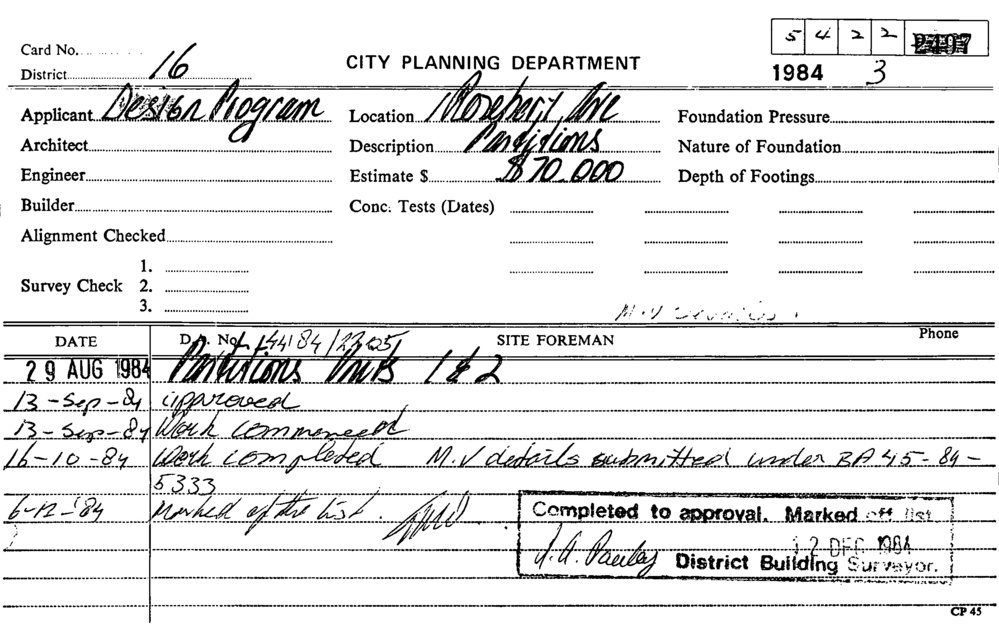 5 4 2 2 2497
Card No.
District 16
CITY PLANNING DEPARTMENT
1984 3
Applicant Design Program
Location 1 Rosebery Ave
Foundation Pressure
Architect
Description Partitions
Nature of Foundation
Engineer
Estimate $ $70.000
Depth of Footings
Builder
Conc. Tests (Dates)
Alignment Checked
Survey Check
1.
2.
3.
DATE
D. No. 44/84/2205
SITE FOREMAN
Phone
29 AUG 1984 Partitions Units 1 & 2
13-Sep-84 approved
13-Sep-84 Work commenced
16-10-84 Work completed M.V details submitted under BA 45-84-
5333
6-12-'84 Marked off the list.
Completed to approval. Marked off list.
12 DEC 1984
District Building Surveyor.
CP 45